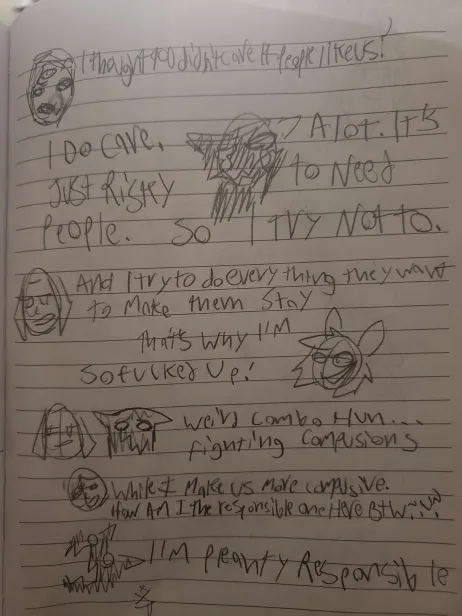 I thought you didn't care if people like us!
I Do care. A lot. It's
Just Risky to Need
People. So I try Not to.
And I try to do everything they want
to Make them Stay
that's why I'M
so fucked Up!
weird combo Hun...
fighting compusions
While I Make us More compulsive.
How AM I the responsible one Here Btw
I'M Pleanty Responsible